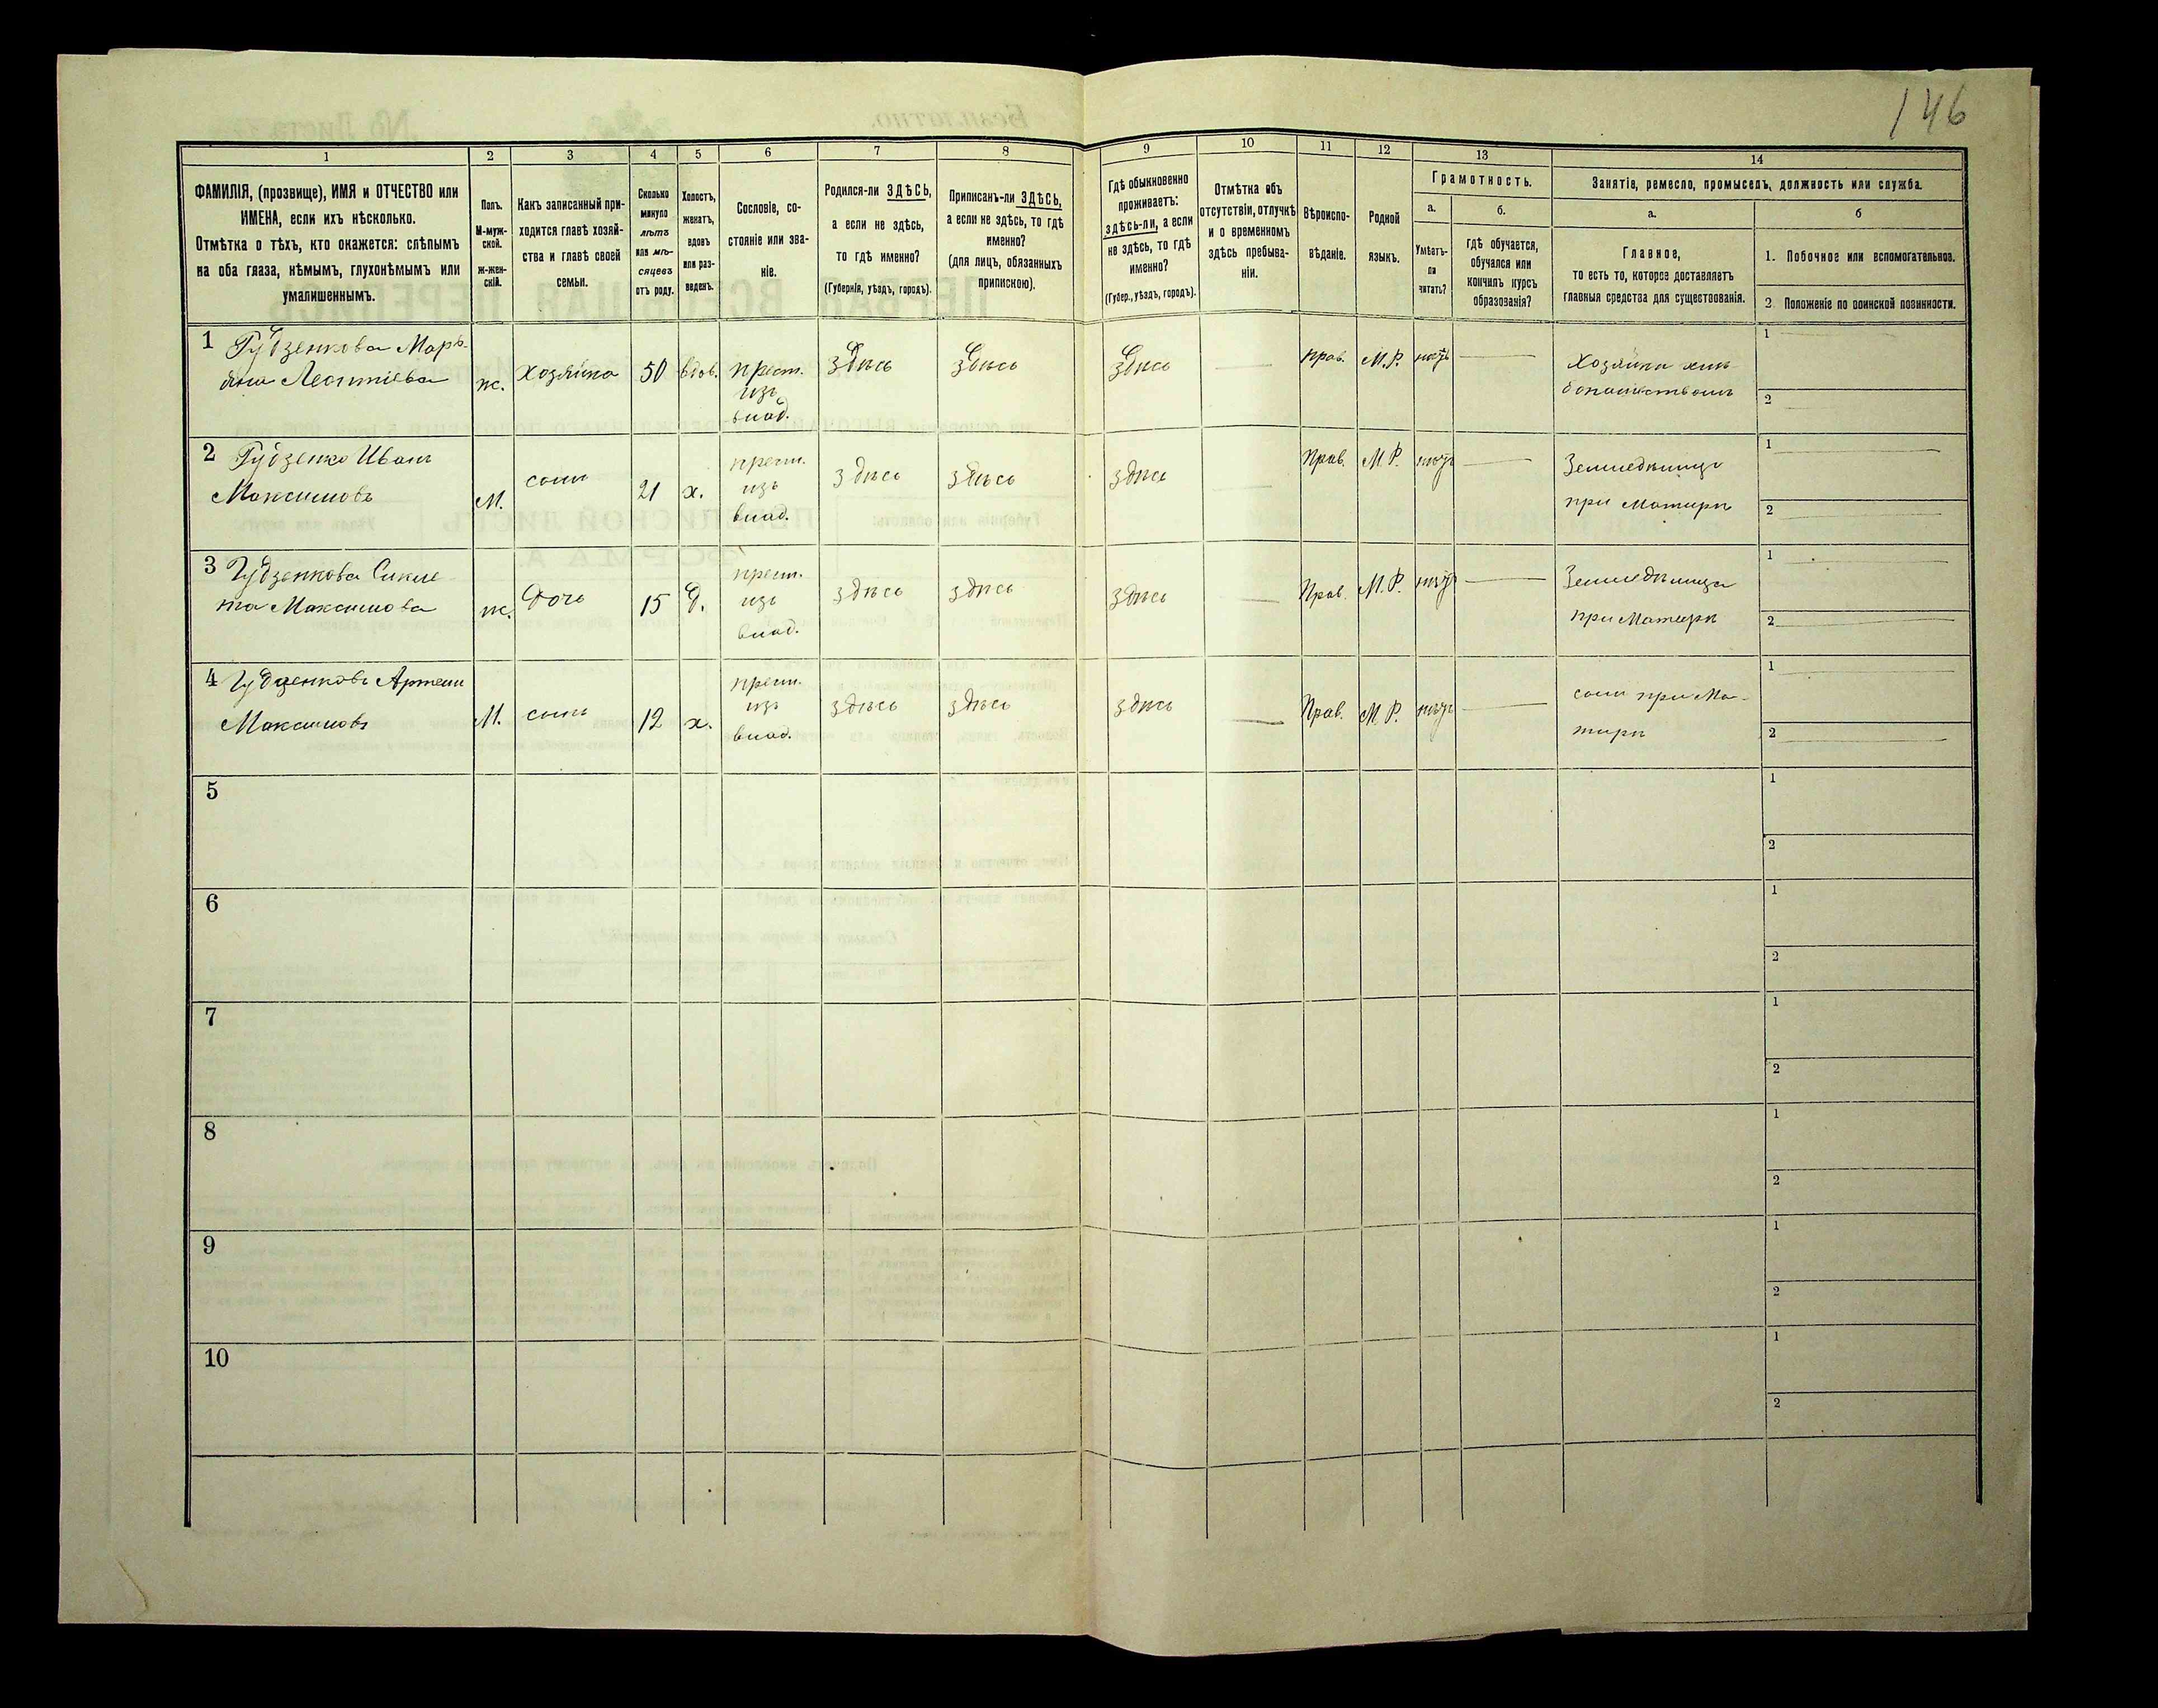 146
1
2
3
4
5
6
7
8
9
10
11
12
13
14
ФАМИЛІЯ, (прозвище), ИМЯ и ОТЧЕСТВО или
ИМЕНА, если ихъ нѣсколько.
Отмѣтка о тѣхъ, кто окажется: слѣпымъ
на оба глаза, нѣмымъ, глухонѣмымъ или
умалишеннымъ.
Полъ.
М-муж-
ской.
ж-жен-
скій.
Какъ записанный при-
ходится главѣ хозяй-
ства и главѣ своей
семьи.
Сколько
минуло
лѣтъ
или мѣ-
сяцевъ
отъ роду.
Холостъ,
женатъ,
вдовъ
или раз-
веденъ.
Сословіе, со-
стояніе или зва-
ніе.
Родился-ли ЗДѢСЬ,
а если не здѣсь,
то гдѣ именно?
(Губернія, уѣздъ, городъ).
Приписанъ-ли ЗДѢСЬ,
а если не здѣсь, то гдѣ
именно?
(для лицъ, обязанныхъ
припискою).
Гдѣ обыкновенно
проживаетъ:
здѣсь-ли, а если
не здѣсь, то гдѣ
именно?
(Губер., уѣздъ, городъ).
Отмѣтка объ
отсутствіи, отлучкѣ
и о временномъ
здѣсь пребыва-
ніи.
Вѣроиспо-
вѣданіе.
Родной
языкъ.
Грамотность.
а.
Умѣетъ-
ли
читать?
б.
гдѣ обучается,
обучался или
кончилъ курсъ
образованія?
Занятіе, ремесло, промыселъ, должность или служба.
а.
Главное,
то есть то, которое доставляетъ
главныя средства для существованія.
б
1. Побочное или вспомогательное.
2. Положеніе по воинской повинности.
1 Гудзенкова Марь-
Леонтіева
ж.
хозяйка
50
вдов.
крест.
изъ
влад.
здѣсь
здѣсь
здѣсь
Прав.
М.Р.
нѣтъ
Хозяйка
1
2
2 Гудзенко Иванъ
Максимовъ
М.
сынъ
21
х.
крест.
изъ
влад.
здѣсь
здѣсь
здѣсь
Прав.
М.Р.
нѣтъ
при Матери
1
2
3 Гудзенкова
Максимова
ж.
Дочь
15
д.
крест.
изъ
влад.
здѣсь
здѣсь
здѣсь
Прав.
М.Р.
нѣтъ
Земледѣлица
при Матери
1
2
4 Гудзенковъ Артемъ
Максимовъ
М.
сынъ
12
х.
крест.
изъ
влад.
здѣсь
здѣсь
здѣсь
Прав.
М.Р.
нѣтъ
сынъ при Ма-
тери
1
2
5
1
2
6
1
2
7
1
2
8
1
2
9
1
2
10
1
2